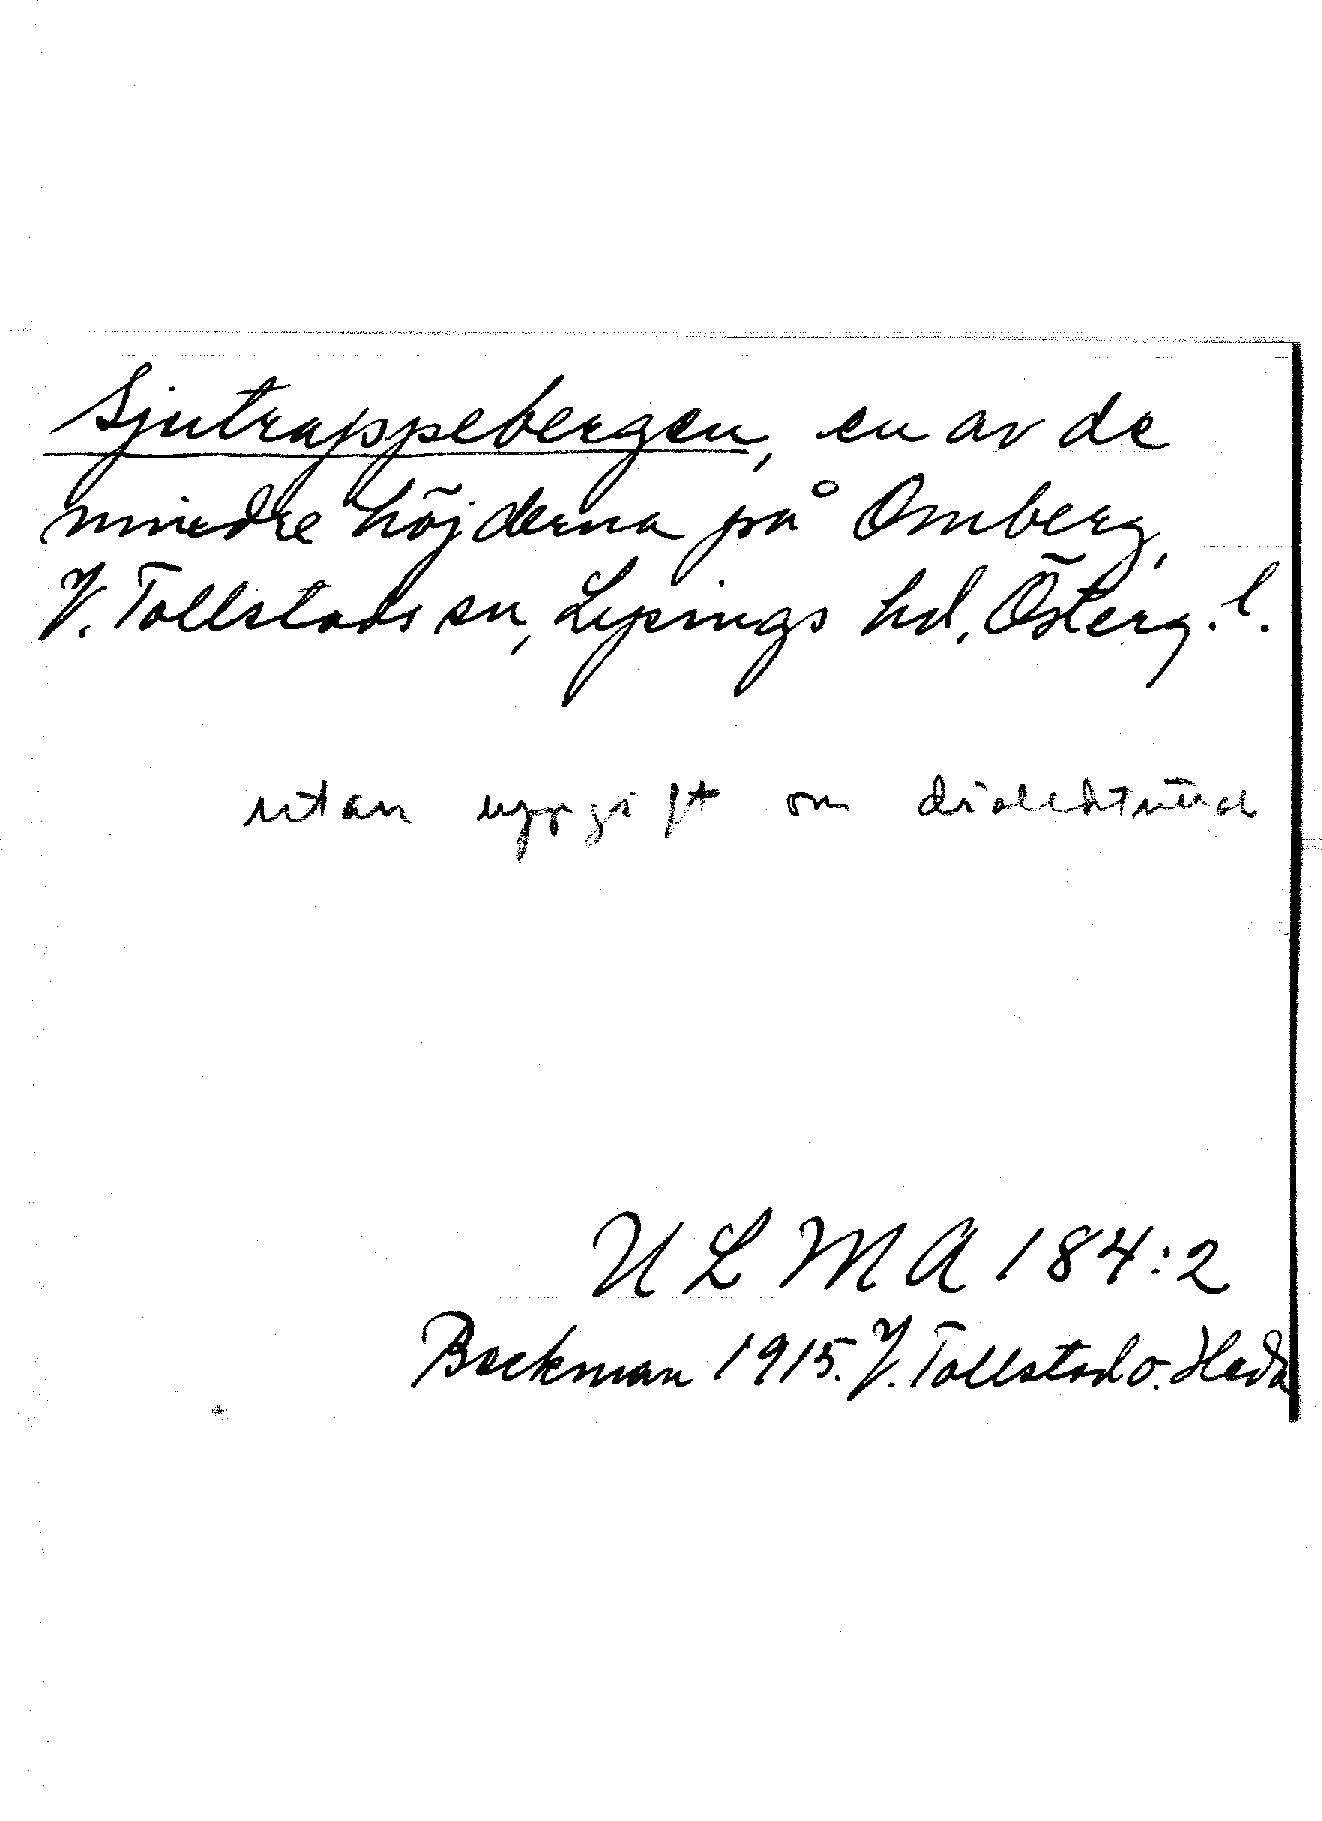 Sjutrappebergen, en av de
mindre höjderna på Omberg,
V. Tollstads sn, Lysings hd, Österg. l.
utan uppgift om dialektuttal
ULMA 184:2
Beckman 1915. V. Tollstad o. Heda